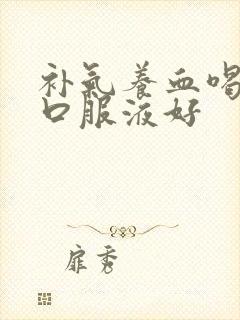 补氣养血喝
口服液好
扉秀